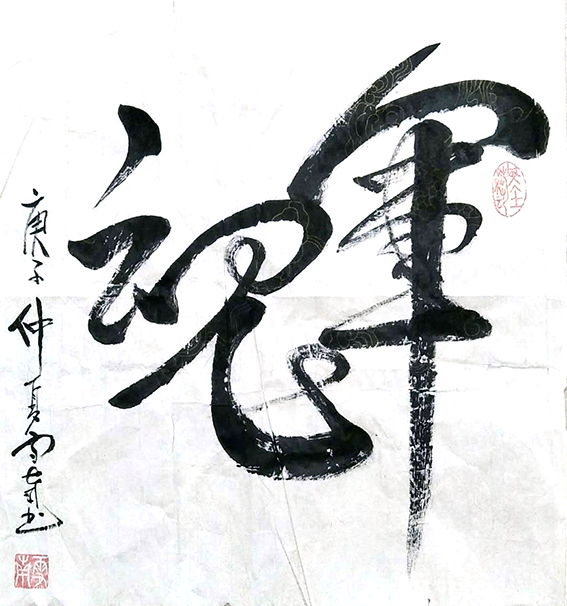 軍魂
庚子仲夏
书